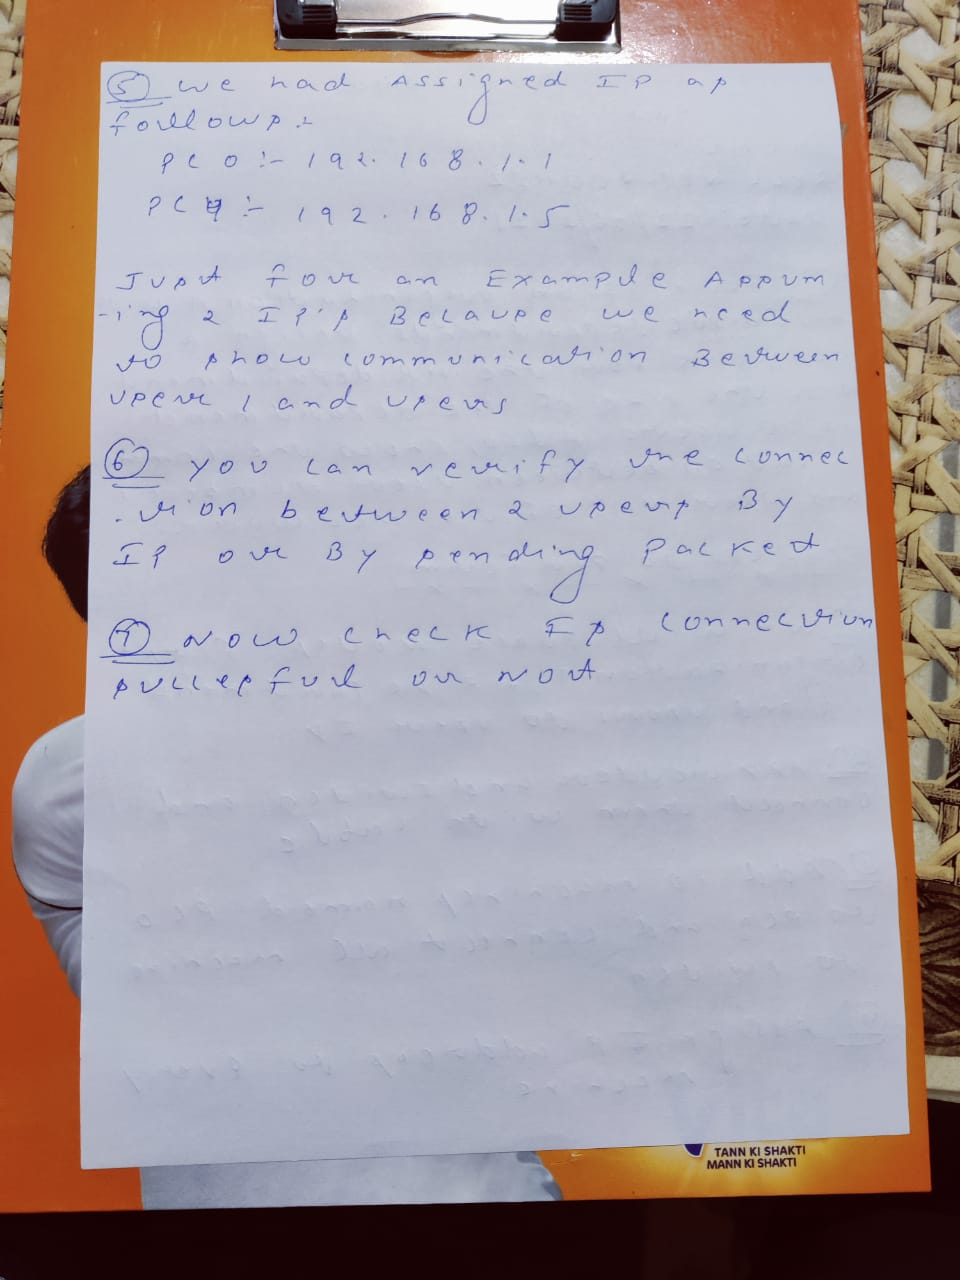 5 We had Assigned IP as
follows :-
PC 0 :- 192.168.1.1
PC 4 :- 192.168.1.5
Just for an Example Assum
-ing 2 IP's Because we need
to show communication Between
user 1 and user 5
6 You can verify the connec
-tion between 2 users By
IP or By sending Packet
7 Now check IP connection
successful or Not
TANN KI SHAKTI
MANN KI SHAKTI